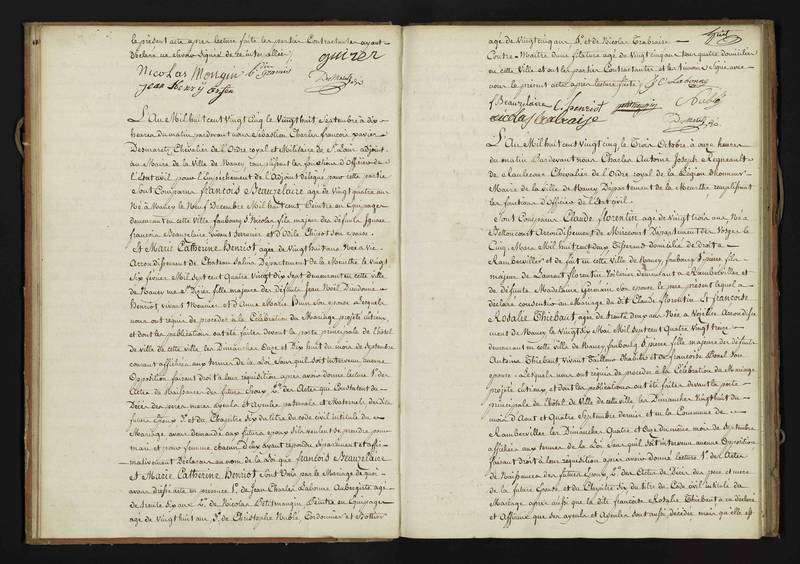 le présent acte après lecture faite les parties Contractantes ayant
déclaré ne savoir Signer de ce interpellées
Nicolas Mongin
Jean henry
L'An Mil huit cent Vingt cinq le Vingt huit Septembre à dix
heures du matin pardevant nous Sébastien Charles françois xavier
Desmarets, Chevalier de l'Ordre royal et Militaire de St Louis adjoint
au Maire de la Ville de Nancy remplissant les fonctions d'Officier de
l'État civil pour l'Empêchement de l'Adjoint délégué pour cette partie
Sont Comparus françois Beauzelaire agé de Vingt quatre ans
Né à Nancy le Neuf Décembre Mil huit cent Peintre en Equipages
demeurant en cette Ville faubourg St Nicolas fils majeur des défunts
françois Beauzelaire vivant Serrurier et d'Odile son epouse
Et Marie Catherine Henriot agée de Vingt huit ans Née à Vic
Arrondissement de Chateau Salins Département de la Meurthe le Vingt
Six février Mil Sept cent Quatre Vingt dix Sept demeurant en cette ville
de Nancy rue fille majeure des défunts Jean Noël Dieudonné
Henriot vivant Meunier et d'Anne Marie son epouse Lesquels
nous ont requis de procéder à la Célébration du Mariage projeté entr'eux
et dont les publications ont été faites devant la porte principale de l'hôtel
de ville de cette ville les Dimanches Onze et Dix huit du mois de Septembre
courant affichées aux termes de la Loi Sans qu'il soit intervenu aucune
Opposition faisant droit à leur réquisition après avoir donné lecture 1° des
Actes de Naissance des futurs Epoux 2° des Actes qui Constatent les
Décès des pères mères ayeuls et Ayeules paternels et Maternels des dits
futurs Epoux 3° et du Chapitre Six du titre du code civil intitulé du
Mariage avons demandé aux futurs époux s'ils veulent se prendre pour
mari et pour femme chacun d'eux ayant répondu séparément et affir-
mativement Déclarons au nom de la Loi que françois Beauzelaire
et Marie Catherine Henriot Sont Unis par le Mariage de quoi
avons dressé acte en présence 1° de Jean Charles Labonne Aubergiste agé
de trente dix ans 2° de Nicolas Petitmangin Peintre en Equipages
agé de Vingt huit ans 3° de Christophe Nublé Cordonnier et Bottier
agé de Vingt cinq ans 4° et de Nicolas Trabraise
Contre-Maître d'une filature agé de Vingt cinq ans tous quatre domiciliés
en cette Ville et ont les parties Contractantes et les témoins signé avec
nous le présent acte après lecture faite J C Labonne
f Beauzelaire C. henriot petitmangin Nublé
nicolas trabraise
L'An Mil huit cent Vingt cinq le Trois Octobre à onze heures
du matin Pardevant nous Charles Antoine Joseph Regneault
de Raulecour Chevalier de l'Ordre royal de la Légion d'honneur
Maire de la Ville de Nancy Département de la Meurthe remplissant
les fonctions d'Officier de l'État civil.
Sont Comparus Claude florentin agé de Vingt trois ans Né à
Bettoncourt Arrondissement de Mirecourt Département des Vosges le
Cinq Mars Mil huit cent deux Tisserand domicilié de Droit à
Rambervillers et de fait en cette Ville de Nancy faubourg St pierre fils
majeur de Laurent florentin Voiturier demeurant à Rambervillers et
de défunte Madelaine Germain son epouse le père présent lequel a
déclaré consentir au Mariage du dit Claude florentin Et françoise
Rosalie Thiebaut agée de trente deux ans Née à Arrondisse
ment de Nancy le Vingt dix Mai Mil Sept cent Quatre Vingt treize
demeurant en cette ville de Nancy faubourg St pierre fille majeure des défunts
Antoine Thiebaut Vivant Tailleur d'habits et de françoise son
epouse Lesquels nous ont requis de procéder à la Célébration du Mariage
projeté entr'eux et dont les publications ont été faites devant la porte
principale de l'hôtel de Ville de cette ville les Dimanches Vingt huit du
mois d'Aout et Quatre Septembre dernier et en la Commune de
Rambervillers les Dimanches Quatre et Onze du même mois de Septembre
affichées aux termes de la Loi Sans qu'il soit intervenu aucune Opposition
faisant droit à leur réquisition après avoir donné lecture 1° des Actes
de Naissance des futurs Epoux 2° des Actes de Décès des père et mère
de la future Epouse et du Chapitre Six du titre du Code civil intitulé du
Mariage après aussi que la dite françoise Rosalie Thiebaut a eu déclaré
et Affirmé que ses ayeuls et Ayeules sont aussi décédés mais qu'elle est